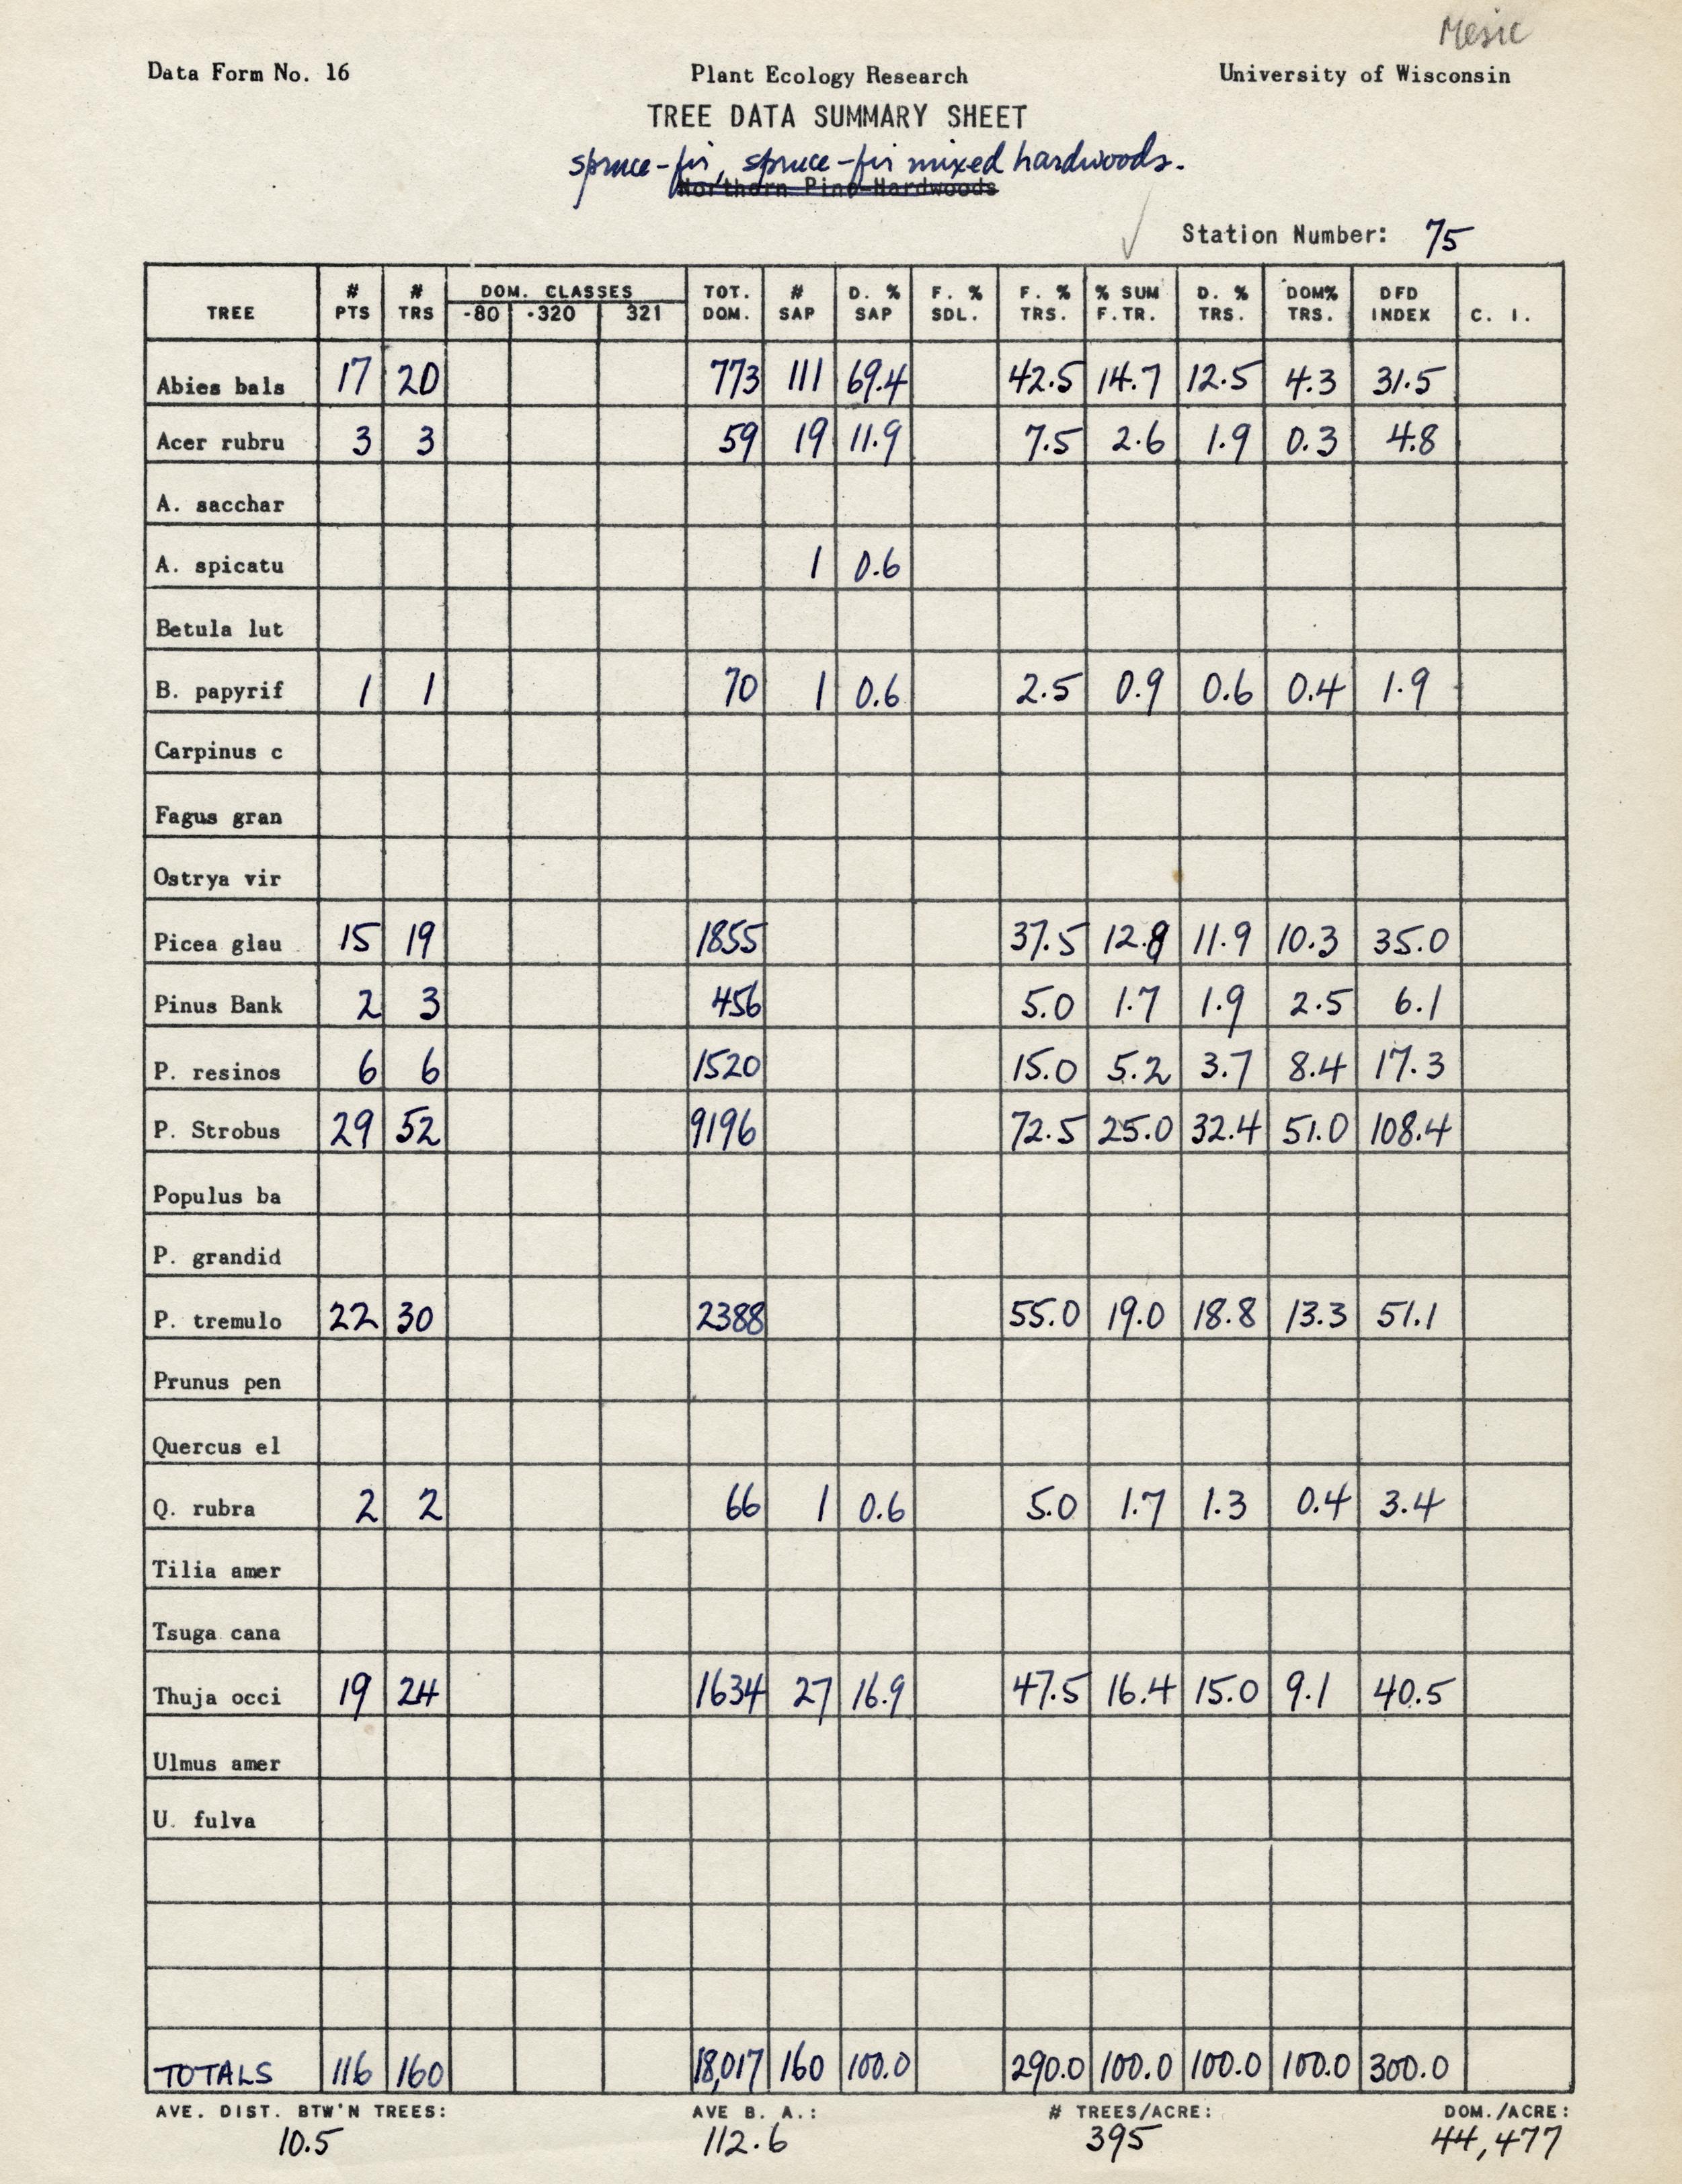 Mesic
Data Form No. 16 Plant Ecology Research University of Wisconsin
TREE DATA SUMMARY SHEET
spruce-fir, spruce-fir mixed hardwoods.
Northern Pine-Hardwoods
Station Number: 75
TREE # PTS # TRS DOM. CLASSES -80 -320 321 TOT. DOM. # SAP D. % SAP F. % SDL. F. % TRS. % SUM F.TR. D. % TRS. DOM% TRS. DFD INDEX C. I.
Abies bals 17 20 773 111 69.4 42.5 14.7 12.5 4.3 31.5
Acer rubru 3 3 59 19 11.9 7.5 2.6 1.9 0.3 4.8
A. sacchar
A. spicatu 1 0.6
Betula lut
B. papyrif 1 1 70 1 0.6 2.5 0.9 0.6 0.4 1.9
Carpinus c
Fagus gran
Ostrya vir
Picea glau 15 19 1855 37.5 12.8 11.9 10.3 35.0
Pinus Bank 2 3 456 5.0 1.7 1.9 2.5 6.1
P. resinos 6 6 1520 15.0 5.2 3.7 8.4 17.3
P. Strobus 29 52 9196 72.5 25.0 32.4 51.0 108.4
Populus ba
P. grandid
P. tremulo 22 30 2388 55.0 19.0 18.8 13.3 51.1
Prunus pen
Quercus el
Q. rubra 2 2 66 1 0.6 5.0 1.7 1.3 0.4 3.4
Tilia amer
Tsuga cana
Thuja occi 19 24 1634 27 16.9 47.5 16.4 15.0 9.1 40.5
Ulmus amer
U. fulva
TOTALS 116 160 18,017 160 100.0 290.0 100.0 100.0 100.0 300.0
AVE. DIST. BTW'N TREES: AVE B. A.: # TREES/ACRE: DOM./ACRE:
10.5 112.6 395 44,477